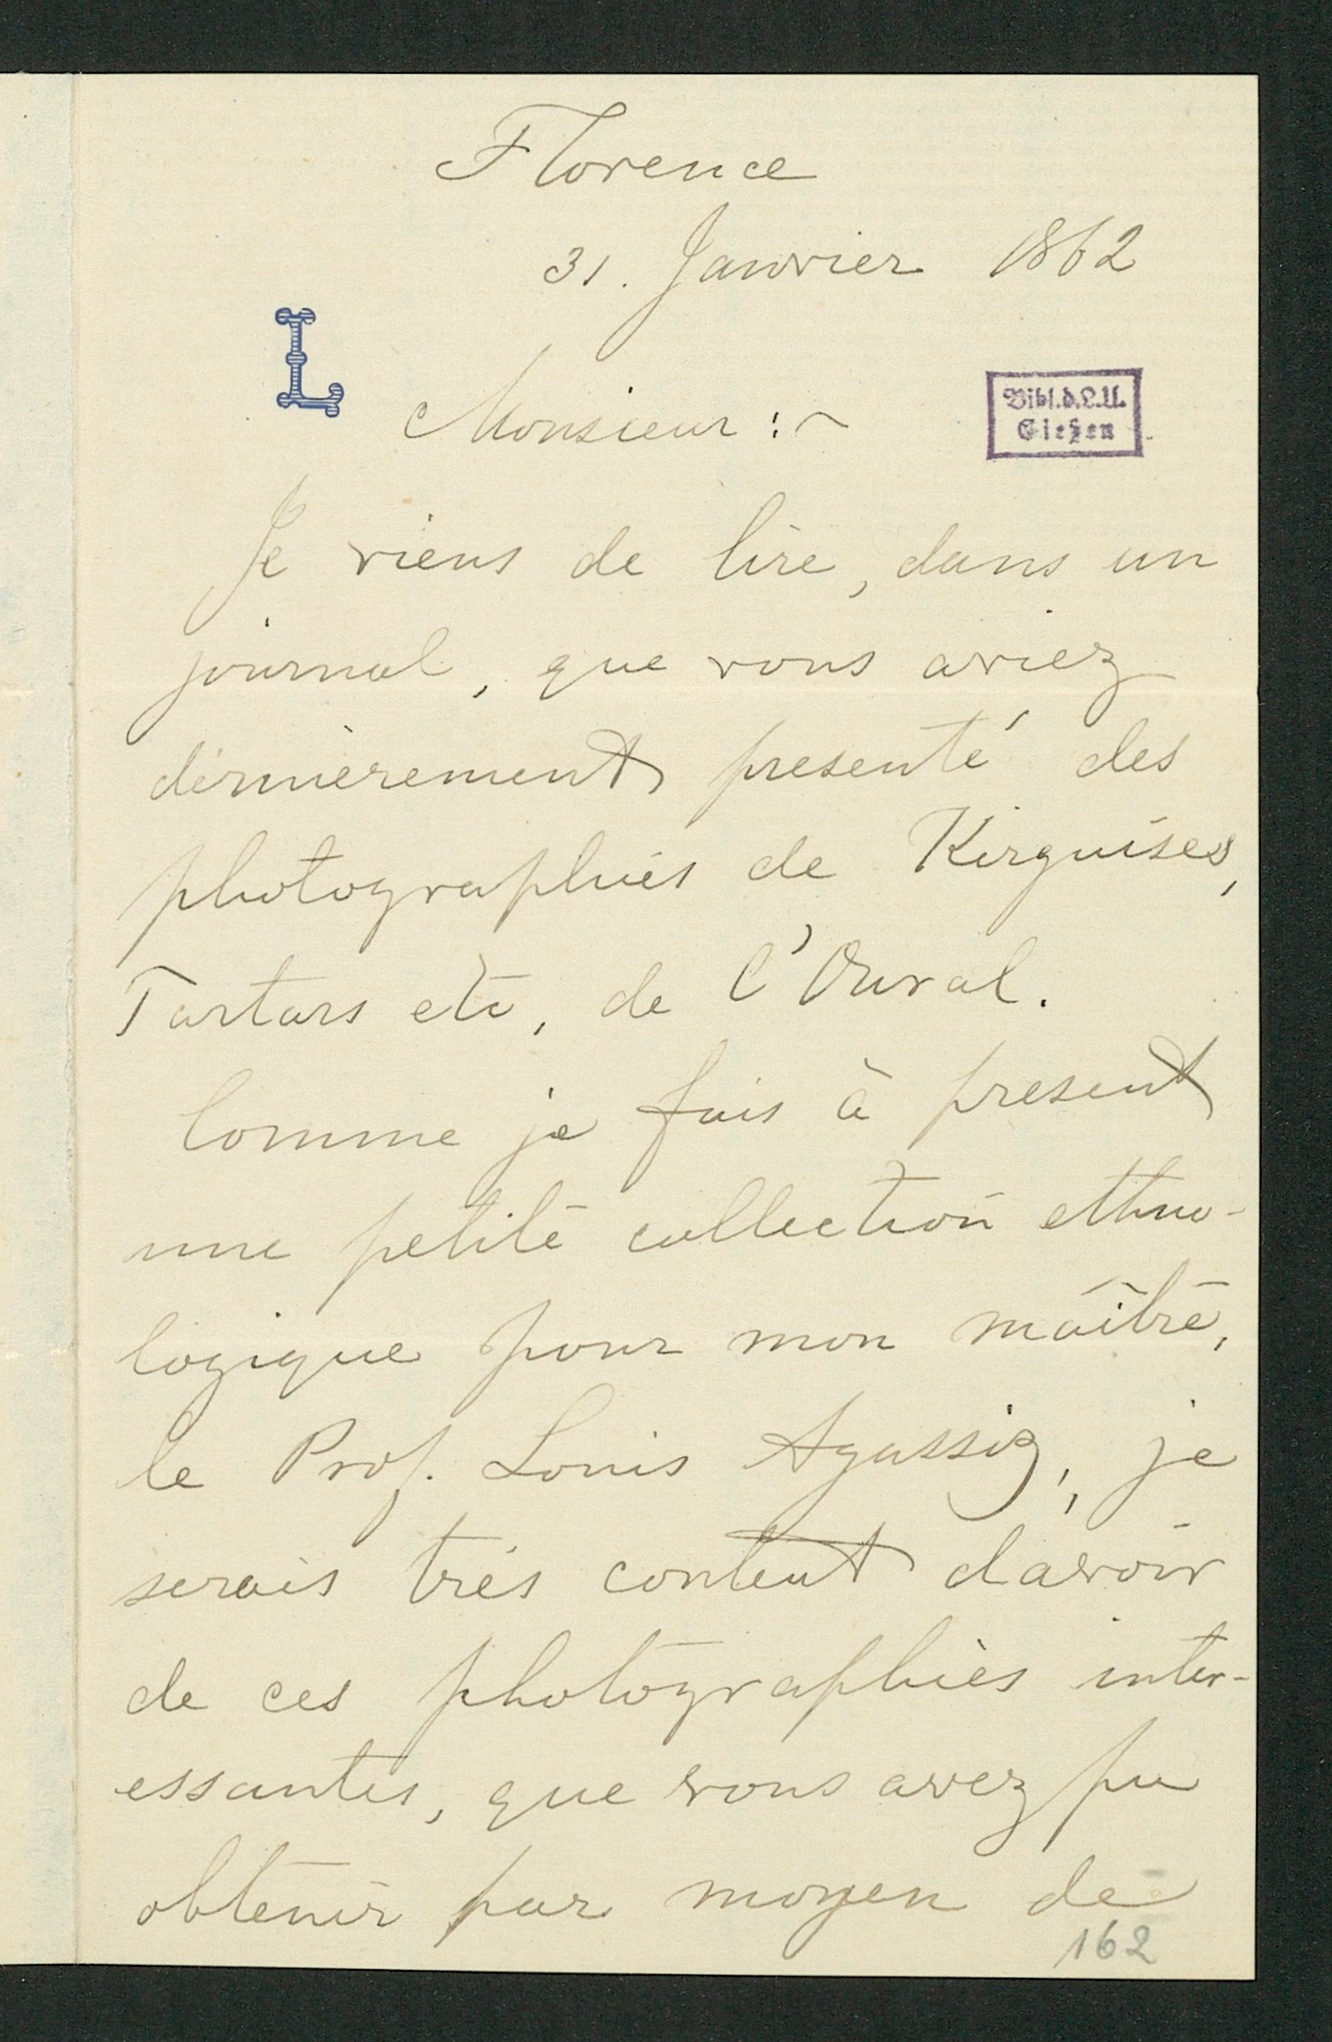 Florence
31. Janvier 1862
L
Monsieur :~
Bibl.d.L.U.
Gießen
Je viens de lire, dans un
journal, que vous aviez
dernièrement presenté des
photographies de Kirguises,
Tartars etc, de l'Oural.
Comme je fais à present
une petite collection ethno-
logique pour mon maître,
le Prof. Louis Agassiz, je
serais trés content d'avoir
de ces photographies inter-
essantes, que vous avez pu
obtenir par moyen de
162